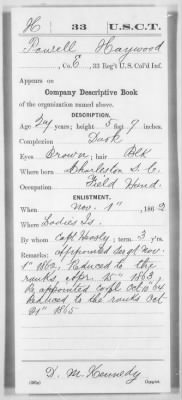 H 33 U.S.C.T.
Powell Haywood
, Co. E, 33 Reg't U. S. Col'd Inf.
Appears on
Company Descriptive Book
of the organization named above.
DESCRIPTION.
Age 24 years; height 5 feet 9 inches.
Complexion Dark
Eyes Brown; hair Blk
Where born Charleston S. C.
Occupation Field Hand
ENLISTMENT.
When Nov. 1", 1862
Where Ladies Is.
By whom Capt ; term 3 y'rs.
Remarks: Appointed Sergt Nov.
1" 1862. Reduced to the
ranks, Apr. 25" 1863,
Re appointed Corpl Oct 64
Reduced to the ranks Oct
21" 1865
D. M. Kennedy
Copyist.